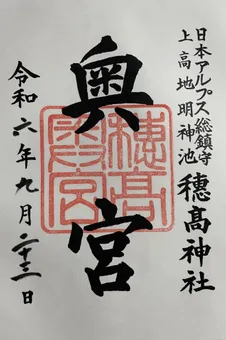 日本アルプス総鎮守
上高地明神池
穂髙神社
奥宮
穂髙
奥宮
令和六年九月二十三日